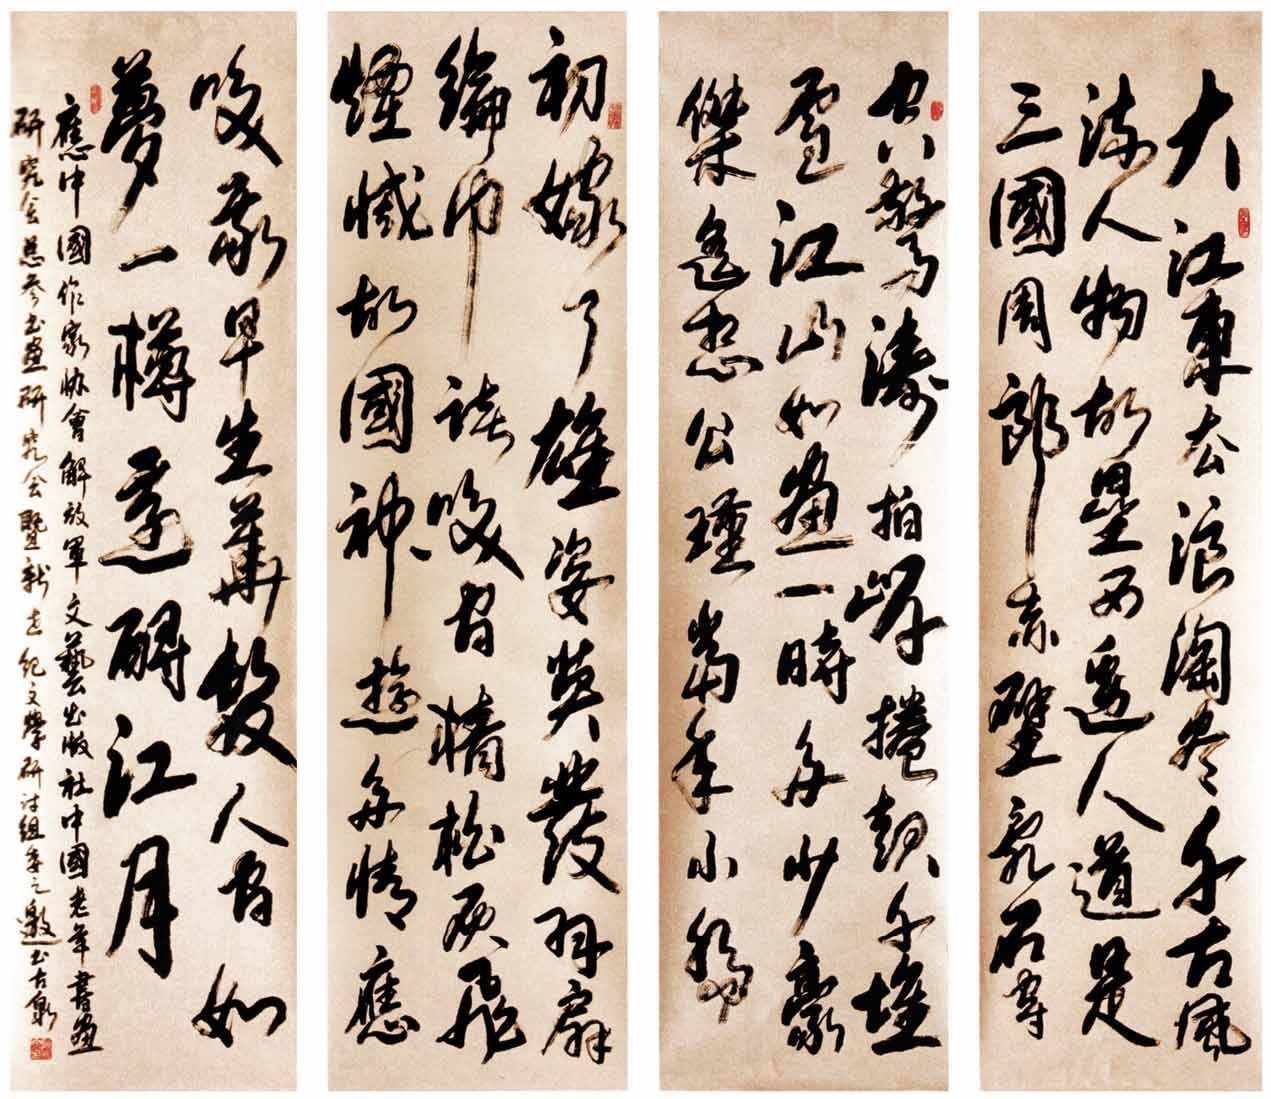 大江東去浪淘盡千古風
流人物故壘西邊人道是
三國周郎赤壁亂石穿
空驚濤拍岸捲起千堆
雪江山如畫一時多少豪
傑遙想公瑾當年小喬
初嫁了雄姿英發羽扇
綸巾談笑間檣櫓灰飛
煙滅故國神遊多情應
笑我早生華髮人間如
夢一樽還酹江月
應中國作家協會解放軍文藝出版社中國老年書畫
研究会書畫研究会暨新世紀文學研讨組委之邀書古泉